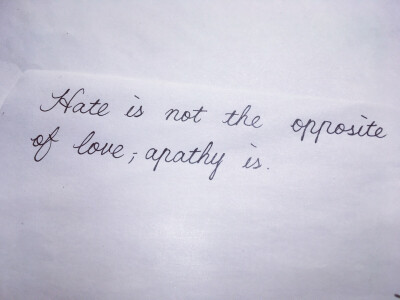 Hate is not the opposite
of love; apathy is.